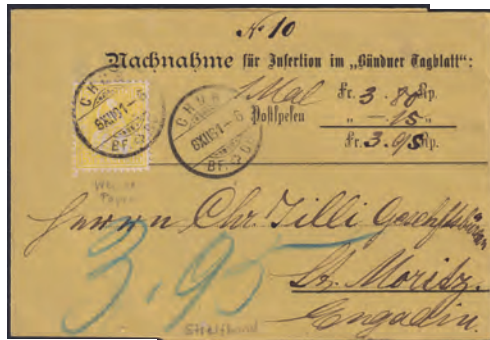 № 10
Nachnahme für Insertion im „Bündner Tagblatt“:
1 Mal Fr. 3.80 Rp.
Postspesen „ — 15 „
Fr. 3.95 Rp.
CHUR
6.XII.91–6
BF.
CHUR
6.XII.91–6
BF.
Herrn Chr. Zilli
3.95
St. Moritz.
Engadin.